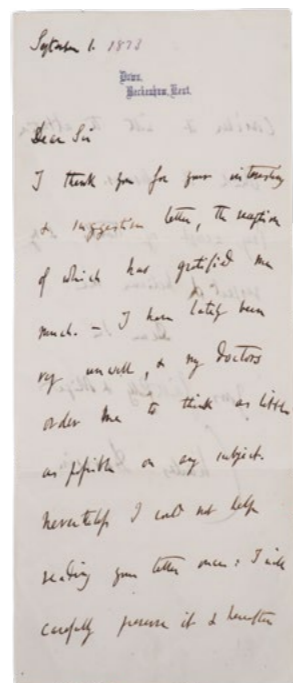 September 1. 1873
Down,
Beckenham, Kent.
Dear Sir
I thank you for your interesting
& suggestive letter, the reception
of which has gratified me
much. — I have lately been
very unwell, & my doctors
order me to think as little
as possible on any subject.
Nevertheless I could not help
reading your letter once; I will
carefully preserve it & hereafter